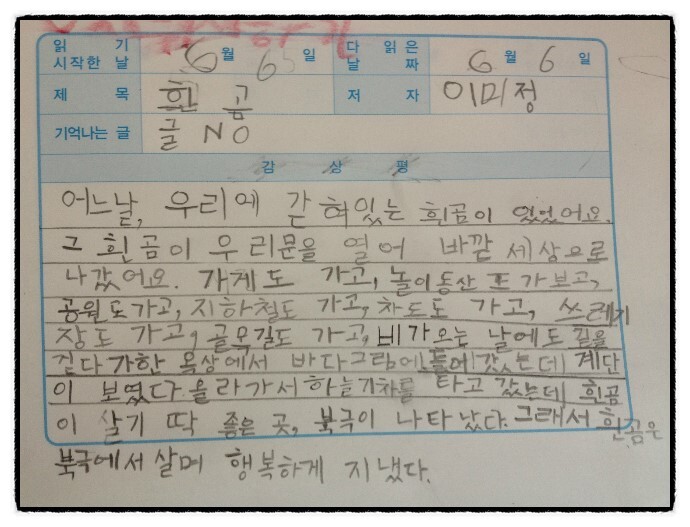 읽기 시작한 날 6월 6일 다 읽은 날짜 6월 6일
제목 흰곰 저자 이미정
기억나는 글 글 NO
감상평
어느날, 우리에 갇혀있는 흰곰이 있었어요.
그 흰곰이 우리문을 열어 바깥 세상으로
나갔어요. 가게도 가고, 놀이동산도 가보고,
공원도가고, 지하철도 가고, 차도도 가고, 쓰레기
장도 가고, 골무길도 가고, 비가오는 날에도 길을
걷다가한 옥상에서 바다그림에 갔는데 계단
이 보였다. 올라가서하늘기차를 타고 갔는데 흰곰
이 살기 딱 좋은 곳, 북극이 나타났다. 그래서 흰곰은
북극에서살며 행복하게 지냈다.